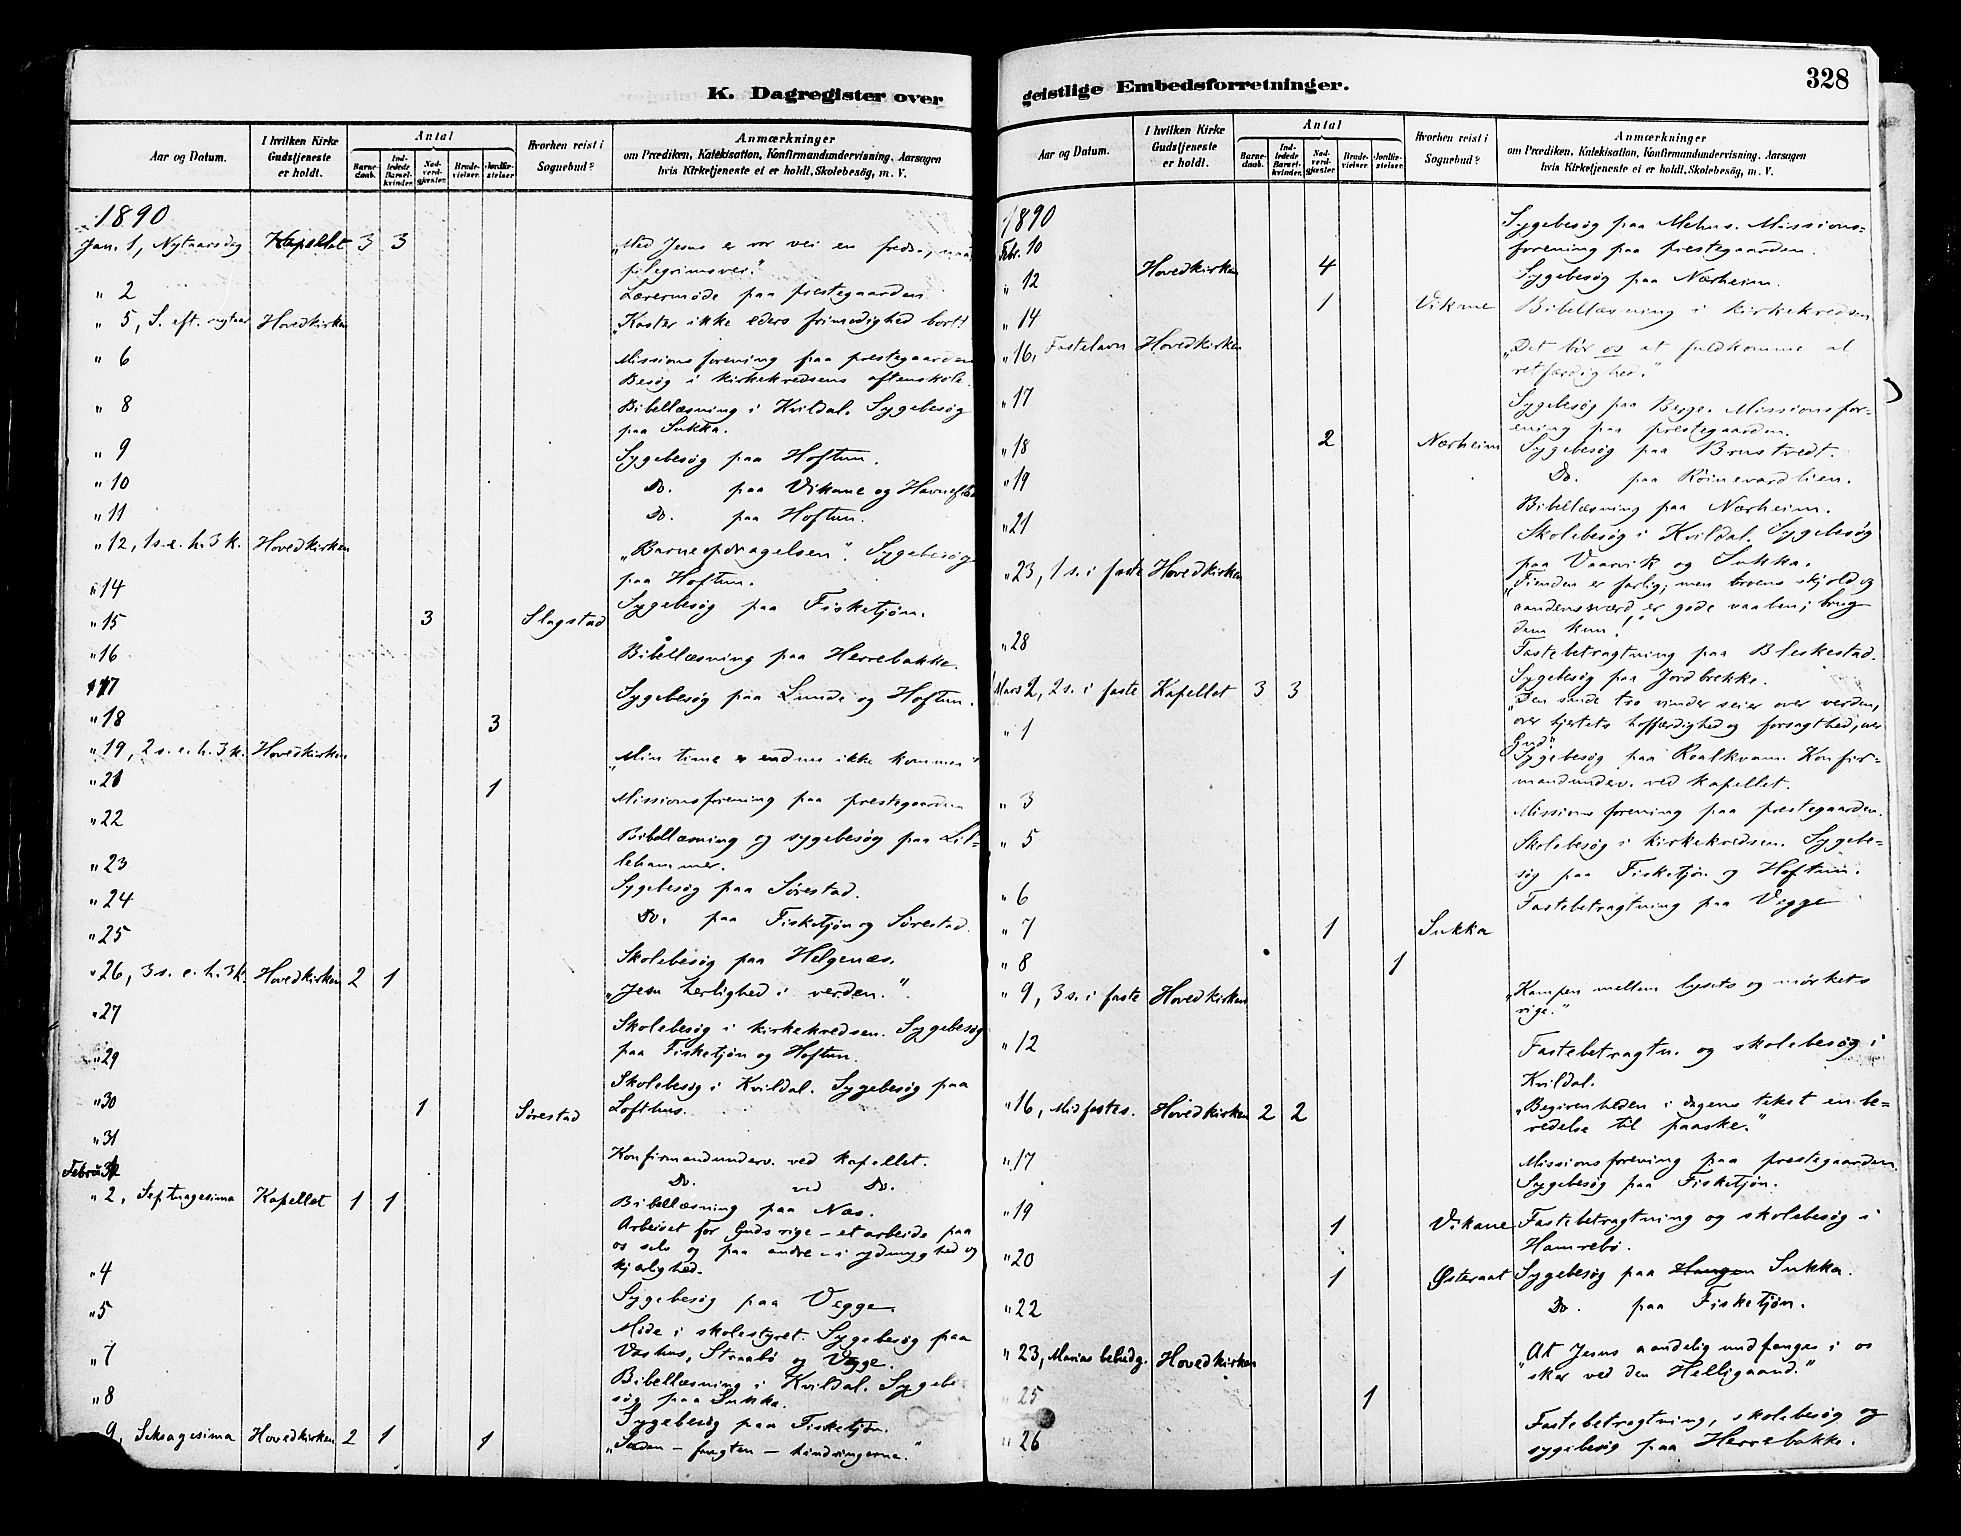 K. Dagregister over
Aar og Datum.
I hvilken Kirke Gudstjeneste er holdt.
Antal
Barne-daab.
Ind-ledede Barsel-kvinder.
Nad-verd-gjæster.
Brude-vielser.
Jordfæ-stelser.
Hvorhen reist i Sognebud?
Anmærkninger
om Prædiken, Katekisation, Konfirmandundervisning, Aarsagen
hvis Kirketjeneste ei er holdt, Skolebesög, m. V.
1890
Jan. 1, Nytaarsdag Kapellet 3 3 „Med Jesus er vor vei en freds
pilegrimsvei."
" 2 Lærermøde paa prestegaarden
" 5, S. eft. nytaar Hovedkirken „Kaster ikke eders frimodighed bort!
" 6 Missionsforening paa prestegaarden
Besøg i kirkekredsens aftenskole.
" 8 Bibellæsning i Kvildal. Sygebesøg
paa Sukka.
" 9 Sygebesøg paa Hoftun.
" 10 Do. paa Vikane og
" 11 Do. paa Hoftun.
" 12, 1 s. e. h. 3 k. Hovedkirken „Barneopdragelsen". Sygebesøg
paa Hoftun.
" 14 Sygebesøg paa Fisketjøn.
" 15 3 Slagstad
" 16 Bibellæsning paa Herrebakke.
" 17 Sygebesøg paa Lunde og Hoftun.
" 18 3
" 19, 2 s. e. h. 3 k. Hovedkirken „Min time er endnu ikke kommen"
" 21 1 Missionsforening paa prestegaarden
" 22 Bibellæsning og sygebesøg paa Lit-
lehammer.
" 23 Sygebesøg paa Sørestad.
" 24 Do. paa Fisketjøn og Sørestad.
" 25 Skolebesøg paa Helgenæs.
" 26, 3 s. e. h. 3 k. Hovedkirken 2 1 „Jesu herlighed i verden."
" 27 Skolebesøg i kirkekredsen. Sygebesøg
paa Fisketjøn og Hoftun.
" 29 Skolebesøg i Kvildal. Sygebesøg paa
Lofthus.
" 30 1 Sørestad
" 31 Konfirmandunderv. ved kapellet.
Februar 1 Do. ved Do.
" 2, Septuagesima Kapellet 1 1 Bibellæsning paa Næs.
Arbeidet for Guds rige – et arbeide paa
os selv og paa andre – i ydmyghed og
kjærlighed.
" 4 Sygebesøg paa Vegge.
" 5 Møde i skolestyret. Sygebesøg paa
Vashus, Straabø og Vegge.
" 7 Bibellæsning i Kvildal. Sygebe
søg paa Sukka.
" 8 Sygebesøg paa Fisketjøn.
9, Seksagesima Hovedkirken 2 1 1 „Sæden – frugten – hindringerne."
geistlige Embedsforretninger.
328
Aar og Datum.
I hvilken Kirke Gudstjeneste er holdt.
Antal
Barne-daab.
Ind-ledede Barsel-kvinder.
Nad-verd-gjæster.
Brude-vielser.
Jordfæ-stelser.
Hvorhen reist i Sognebud?
Anmærkninger
om Prædiken, Katekisation, Konfirmandundervisning, Aarsagen
hvis Kirketjeneste ei er holdt, Skolebesög, m. V.
1890
Febr. 10 Sygebesøg paa Mehus. Missions-
forening paa prestegaarden.
" 12 Hovedkirken 4 Sygebesøg paa Nærheim.
" 14 1 Vikane Bibellæsning i kirkekredsen
" 16, Fastelavn Hovedkirken „Det bør os at fuldkomme al
retfærdighed."
" 17 Sygebesøg paa Berge. Missionsfor-
ening paa prestegaarden.
" 18 2 Nærheim Sygebesøg paa Brustvedt.
" 19 Do. paa Röinevardlien.
" 21 Bibellæsning paa Nærheim.
Skolebesøg i Kvildal. Sygebesøg
paa Vaarvik og Sukka.
" 23, 1 s. i faste Hovedkirken „Fienden er farlig; men troens skjold og
aandens sværd er gode vaaben; brug
dem kun!"
" 28 Fastebetragtning paa Bleskestad.
Sygebesøg paa Jordbrekke.
Mars 2, 2 s. i faste Kapellet 3 3 „Den sande tro vinder seier over verden,
over hjertets hoffærdighed og forsagthed, over
Gud"
" 1 Sygebesøg paa Roalkvam. Konfir-
mandunderv. ved kapellet.
" 3 Missionsforening paa prestegaarden.
" 5 Skolebesøg i kirkekredsen. Sygebe-
søg paa Fisketjøn og Hoftun.
" 6 Fastebetragtning paa Vegge
" 7 1 Sukka
" 8 1
" 9, 3 s. i faste Hovedkirken „Kampen mellem lysets og mørkets
rige."
" 12 Fastebetragtn. og skolebesøg i
Kvildal.
" 16, Midfastes. Hovedkirken 2 2 „Begivenheden i dagens tekst en be-
redelse til paaske."
" 17 Missionsforening paa prestegaarden
Sygebesøg paa Fisketjøn.
" 19 1 Vikane Fastebetragtning og skolebesøg i
Hamrebø.
" 20 1 Østeraat Sygebesøg paa Haugen Sukka.
" 22 Do. paa Fisketjøn.
" 23, Marias bebudg. Hovedkirken „At Jesus aandelig undfanges i os
sker ved den Helligaand."
" 25 1
" 26 Fastebetragtning, skolebesøg og
sygebesøg paa Herrebakke.